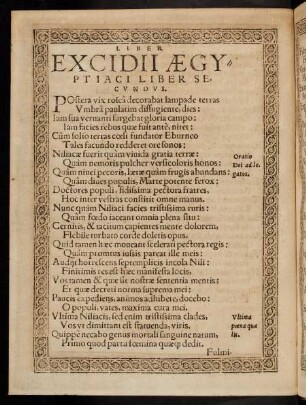 LIBER
EXCIDII ÆGY-
PTIACI LIBER SE-
CVNDVS.
POstera vix roseâ decorabat lampade terras
Vmbrâ paulatim diffugiente, dies:
Iam sua vernanti surgebat gloria campo:
Iam facies rebus quæ fuit antè, nitet:
Cùm solio terras cœli fundator Eburneo
Tales facundo redderet ore sonos:
Niliacæ fuerit quàm viuida gratia terræ:
Quàm nemoris pulcher versicoloris honos:
Quàm niuei pecoris, lætæ quàm frugis abundans:
Quàm diues populis, Marte potente ferox:
Doctores populi, fidissima pectora fratres:
Hoc inter vestras constitit omne manus.
Nunc quàm Niliaci facies tristissima ruris:
Quàm fœdo iaceant omnia plena situ:
Cernitis, & tacitum capientes mente dolorem,
Flebile turbato corde doletis opus.
Quid tamen hæc moneant scelerati pectora regis:
Quàm promtus iussis pareat ille meis:
Audijt horrescens septemplicis incola Nili:
Finitimis res est hæc manifesta locis.
Vos tamen & quæ sit nostræ sententia mentis:
Et quæ decreti norma supremo mei:
Paucis expediens, animos adhibete, docebo:
O populi, vates, maxima cura mei.
Vltima Niliacis, sed enim tristissima clades,
Vos vt dimittant est statuenda, viris.
Quippe necabo genus mortali sanguine natum,
Primo quod partu fœmina quæq; dedit.
Fulmi-
Oratio
Dei ad le-
gatos.
Vltima
pœna quæ
sit.